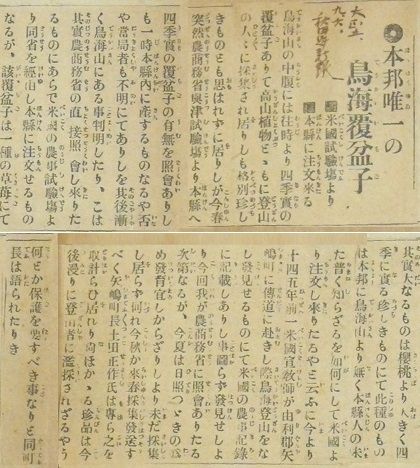 大正二、
九、六、
◉本邦唯一の
鳥海覆盆子
■米國試驗場より
■本縣に注文來る
鳥海山の中腹には往時より四季實の
覆盆子ありて高山植物とゝもに登山
の人々に採集され居りしも格別珍し
きものとも思はれずに居りしが今春
突然農商務省興津試驗場より本縣へ
四季實の覆盆子の有無を照會ありし
も一時本縣內に產するものなるや否
や當局者も不明にてありしを其後漸
く鳥海山にある事判明したり、こは
其實農商務省の直接照會し來りた
るものにあらで米國の農事試驗場よ
り同省を經由し本縣に注文せるもの
なるが、該覆盆子は一種の草苺にて
其實なるものは櫻桃より大きく四
季に實る珍しきものにて此種のもの
は本邦に鳥海山より無く本縣人の未
た普く知らざるを如何にして米國よ
り注文し來りたるやと云ふに今より
十四五年前、米國宣敎師が由利郡矢
嶋町に傳道に赴きし際鳥海登山をな
し發見せるものにて米國の農事記錄
に記載しありし事圖らず發見せしよ
り今回我が農商務省に照會ありたる
次第なるが、今夏は日照つゞきの爲
め發育宜しからざりしより未だ採集
し居らず何れ今秋か來春採集發送す
べく矢嶋町長土田甚作氏は專ら之を
取計らひ居れり尙ほかゝる珍品は今
後漫りに登山者に濫採されざるやう
何とか保護を要すべき事なりと同町
長は語られたりき